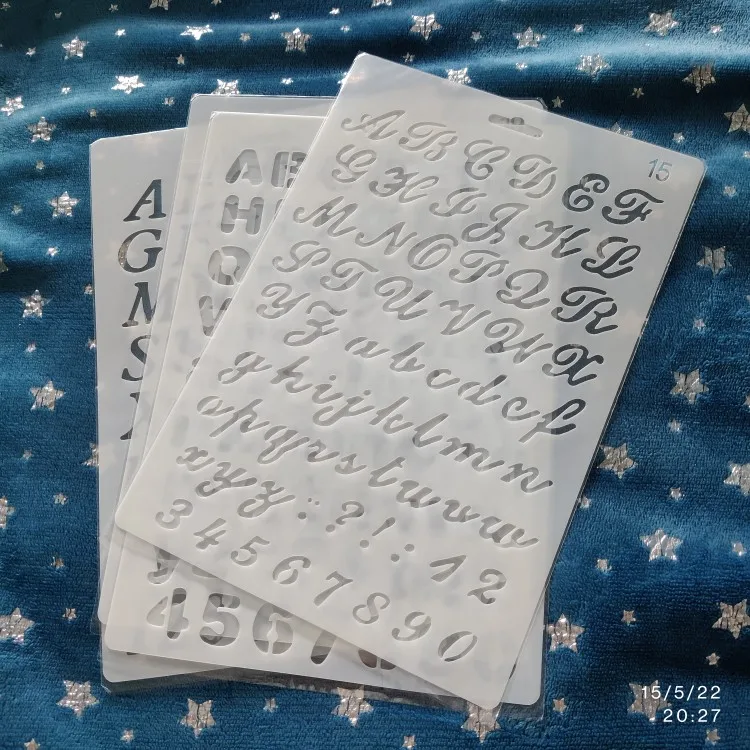 15
A B C D E F
G H I J K L
M N O P Q R
S T U V W X
Y Z a b c d e f
g h i j k l m n
o p q r s t u v w
x y z : ? ! : 1 2
3 4 5 6 7 8 9 0
A B
H
O
V
4 5 6 7
A
G
M
S
15/5/22
20:27